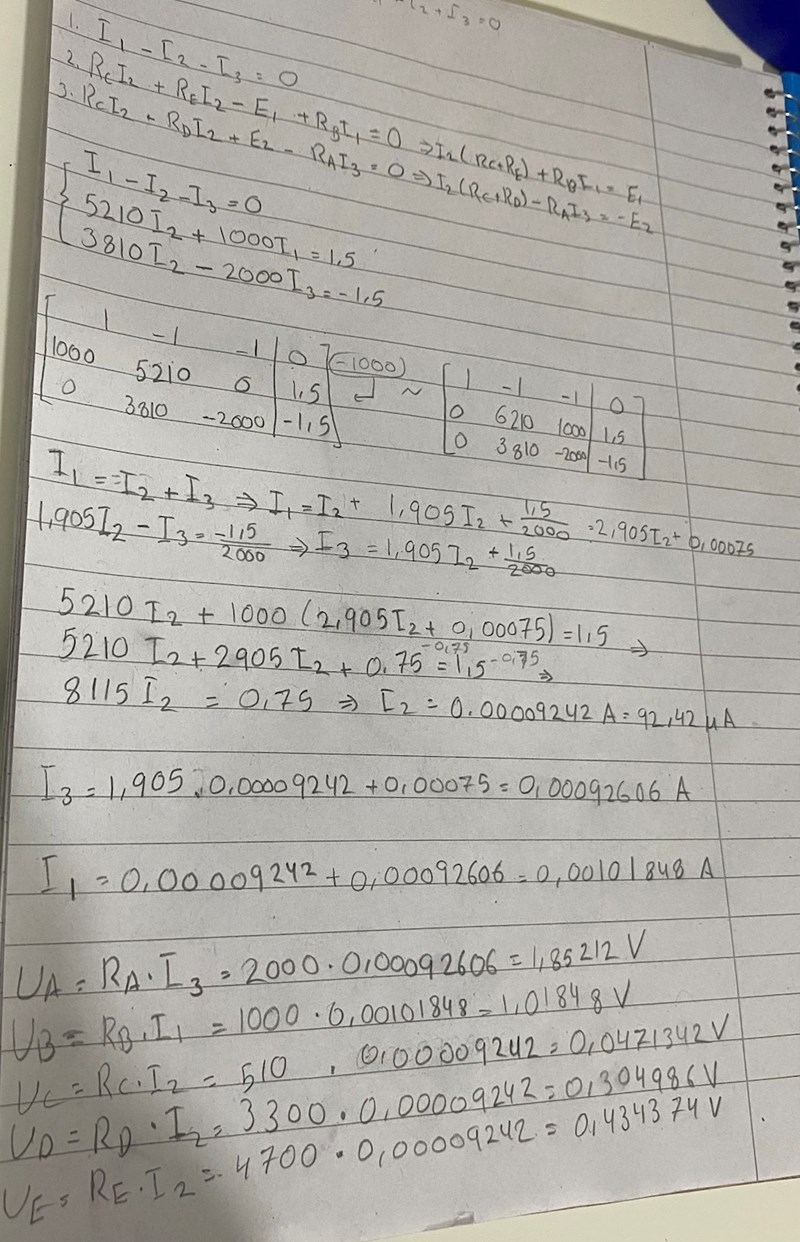 I₂ + I₃ = 0
1. I₁ - I₂ - I₃ = 0
2. RcI₂ + REI₂ - E₁ + RBI₁ = 0 ⇒ I₂(Rc+RE) + RBI₁ = E₁
3. RcI₂ + RDI₂ + E₂ - RAI₃ = 0 ⇒ I₂(Rc+RD) - RAI₃ = -E₂
I₁ - I₂ - I₃ = 0
5210I₂ + 1000I₁ = 1,5
3810I₂ - 2000I₃ = -1,5
[ 1 -1 -1 | 0 ] (-1000) [ 1 -1 -1 | 0 ]
[ 1000 5210 0 | 1,5 ] ↲ ~ [ 0 6210 1000 | 1,5 ]
[ 0 3810 -2000 | -1,5 ] [ 0 3810 -2000 | -1,5 ]
I₁ = I₂ + I₃ ⇒ I₁ = I₂ + 1,905I₂ + 1,5/2000 = 2,905I₂ + 0,00075
1,905I₂ - I₃ = -1,5/2000 ⇒ I₃ = 1,905I₂ + 1,5/2000
5210I₂ + 1000(2,905I₂ + 0,00075) = 1,5 ⇒
5210I₂ + 2905I₂ + 0,75 -0,75 = 1,5 -0,75 ⇒
8115I₂ = 0,75 ⇒ I₂ = 0.00009242 A = 92,42 μA
I₃ = 1,905 · 0,00009242 + 0,00075 = 0,00092606 A
I₁ = 0,00009242 + 0,00092606 = 0,00101848 A
UA = RA · I₃ = 2000 · 0,00092606 = 1,85212 V
UB = RB · I₁ = 1000 · 0,00101848 = 1,01848 V
UC = RC · I₂ = 510 · 0,00009242 = 0,0471342 V
UD = RD · I₂ = 3300 · 0,00009242 = 0,304986 V
UE = RE · I₂ = 4700 · 0,00009242 = 0,434374 V